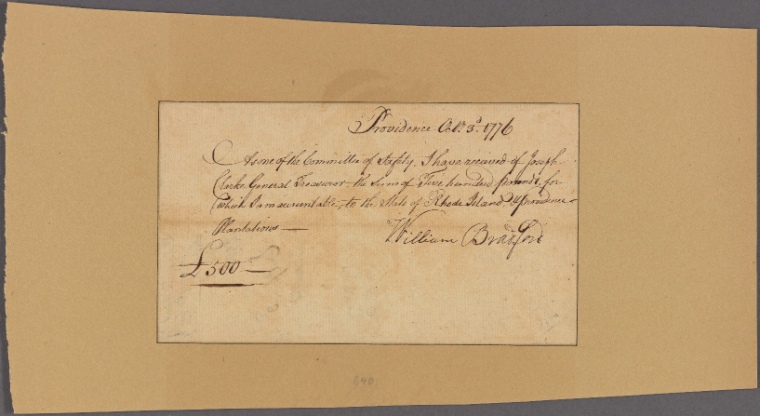 Providence Octr. 3d. 1776
As one of the Committee of Safety, I have received of Joseph
Clarke General Treasurer the Sum of Five hundred pounds, for
which I am accountable, to the State of Rhode Island & Providence
Plantations —
William Bradford
£500 —
640